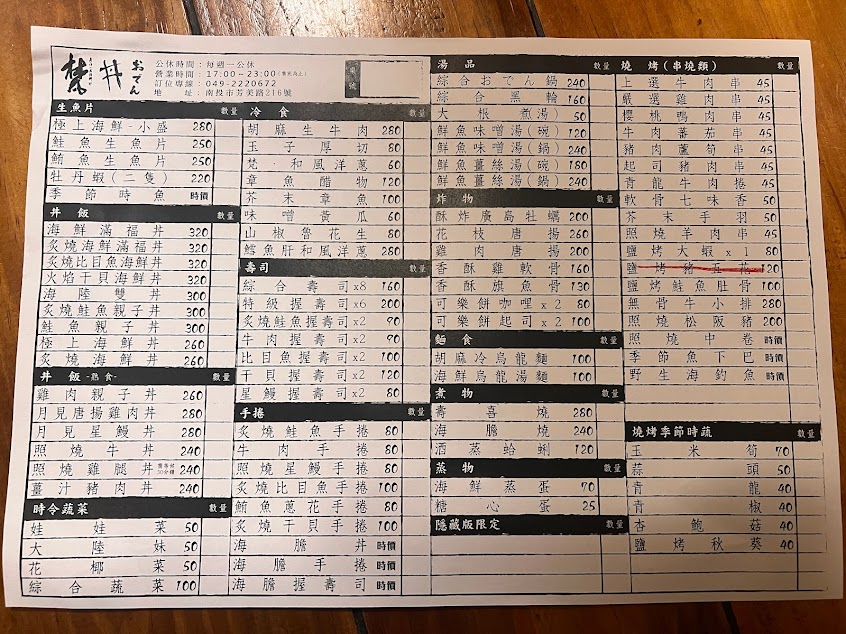 梵 丼 おでん
公休時間：每週一公休
營業時間：17:00~23:00(售完為止)
訂位專線：049-2220672
地 址：南投市芳美路216號
桌號
生魚片 數量
極上海鮮-小盛 280
鮭魚生魚片 250
鮪魚生魚片 250
牡丹蝦(二隻) 220
季節時魚 時價
丼飯 數量
海鮮滿福丼 320
炙燒海鮮滿福丼 320
炙燒比目魚海鮮丼 320
火焰干貝海鮮丼 320
海陸雙丼 300
炙燒鮭魚親子丼 300
鮭魚親子丼 300
極上海鮮丼 260
炙燒海鮮丼 260
丼飯-熟食- 數量
雞肉親子丼 260
月見唐揚雞肉丼 280
月見星鰻丼 280
照燒牛丼 240
照燒雞腿丼 需等候30分鐘 240
薑汁豬肉丼 240
時令蔬菜 數量
娃娃菜 50
大陸妹 50
花椰菜 50
綜合蔬菜 100
冷食 數量
胡麻生牛肉 280
玉子厚切 80
梵·和風洋蔥 60
章魚醋物 120
芥末章魚 100
味噌黃瓜 60
山椒魯花生 80
鱈魚肝和風洋蔥 280
壽司 數量
綜合壽司x8 160
特級握壽司x6 200
炙燒鮭魚握壽司x2 90
牛肉握壽司x2 90
比目魚握壽司x2 100
干貝握壽司x2 120
星鰻握壽司x2 80
手捲 數量
炙燒鮭魚手捲 80
牛肉手捲 80
照燒星鰻手捲 80
炙燒比目魚手捲 100
鮪魚蔥花手捲 80
炙燒干貝手捲 100
海膽丼 時價
海膽手捲 時價
海膽握壽司 時價
湯品 數量
綜合おでん鍋 240
綜合黑輪 160
大根(煮湯) 50
鮮魚味噌湯(碗) 120
鮮魚味噌湯(鍋) 240
鮮魚薑絲湯(碗) 180
鮮魚薑絲湯(鍋) 240
炸物 數量
酥炸廣島牡蠣 200
花枝唐揚 260
雞肉唐揚 200
香酥雞軟骨 160
香酥旗魚骨 130
可樂餅咖哩x2 80
可樂餅起司x2 100
麵食 數量
胡麻冷烏龍麵 100
海鮮烏龍湯麵 100
煮物 數量
壽喜燒 280
海膽燒 240
酒蒸蛤蜊 120
蒸物 數量
海鮮蒸蛋 70
糖心蛋 25
隱藏版限定 數量
燒烤(串燒類) 數量
上選牛肉串 45
嚴選雞肉串 45
櫻桃鴨肉串 45
牛肉蕃茄串 45
豬肉蘆筍串 45
起司豬肉串 45
青龍牛肉捲 45
軟骨七味香 50
芥末手羽 50
照燒羊肉串 45
鹽烤大蝦x1 80
鹽烤豬五花 120
鹽烤鮭魚肚骨 100
無骨牛小排 280
照燒松阪豬 200
照燒中卷 時價
季節魚下巴 時價
野生海釣魚 時價
燒烤季節時蔬 數量
玉米筍 70
蒜頭 50
青龍 40
青椒 40
杏鮑菇 40
鹽烤秋葵 40